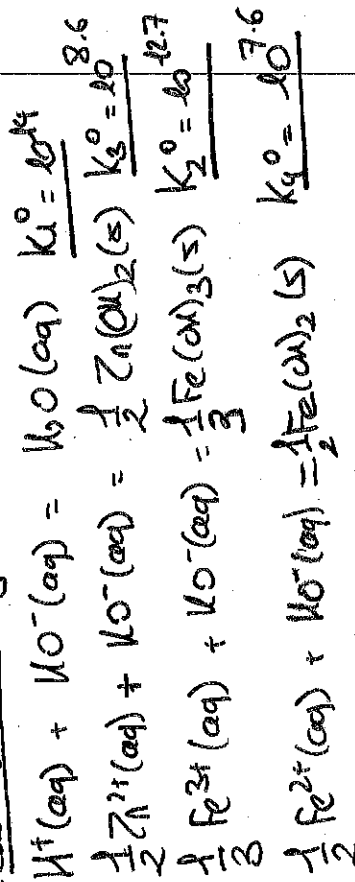 H⁺(aq) + HO⁻(aq) = H₂O(aq) K₁⁰ = 10¹⁴
½ Zn²⁺(aq) + HO⁻(aq) = ½ Zn(OH)₂(s) K₃⁰ = 10^8.6
⅓ Fe³⁺(aq) + HO⁻(aq) = ⅓ Fe(OH)₃(s) K₂⁰ = 10^12.7
½ Fe²⁺(aq) + HO⁻(aq) = ½ Fe(OH)₂(s) K₄⁰ = 10^7.6